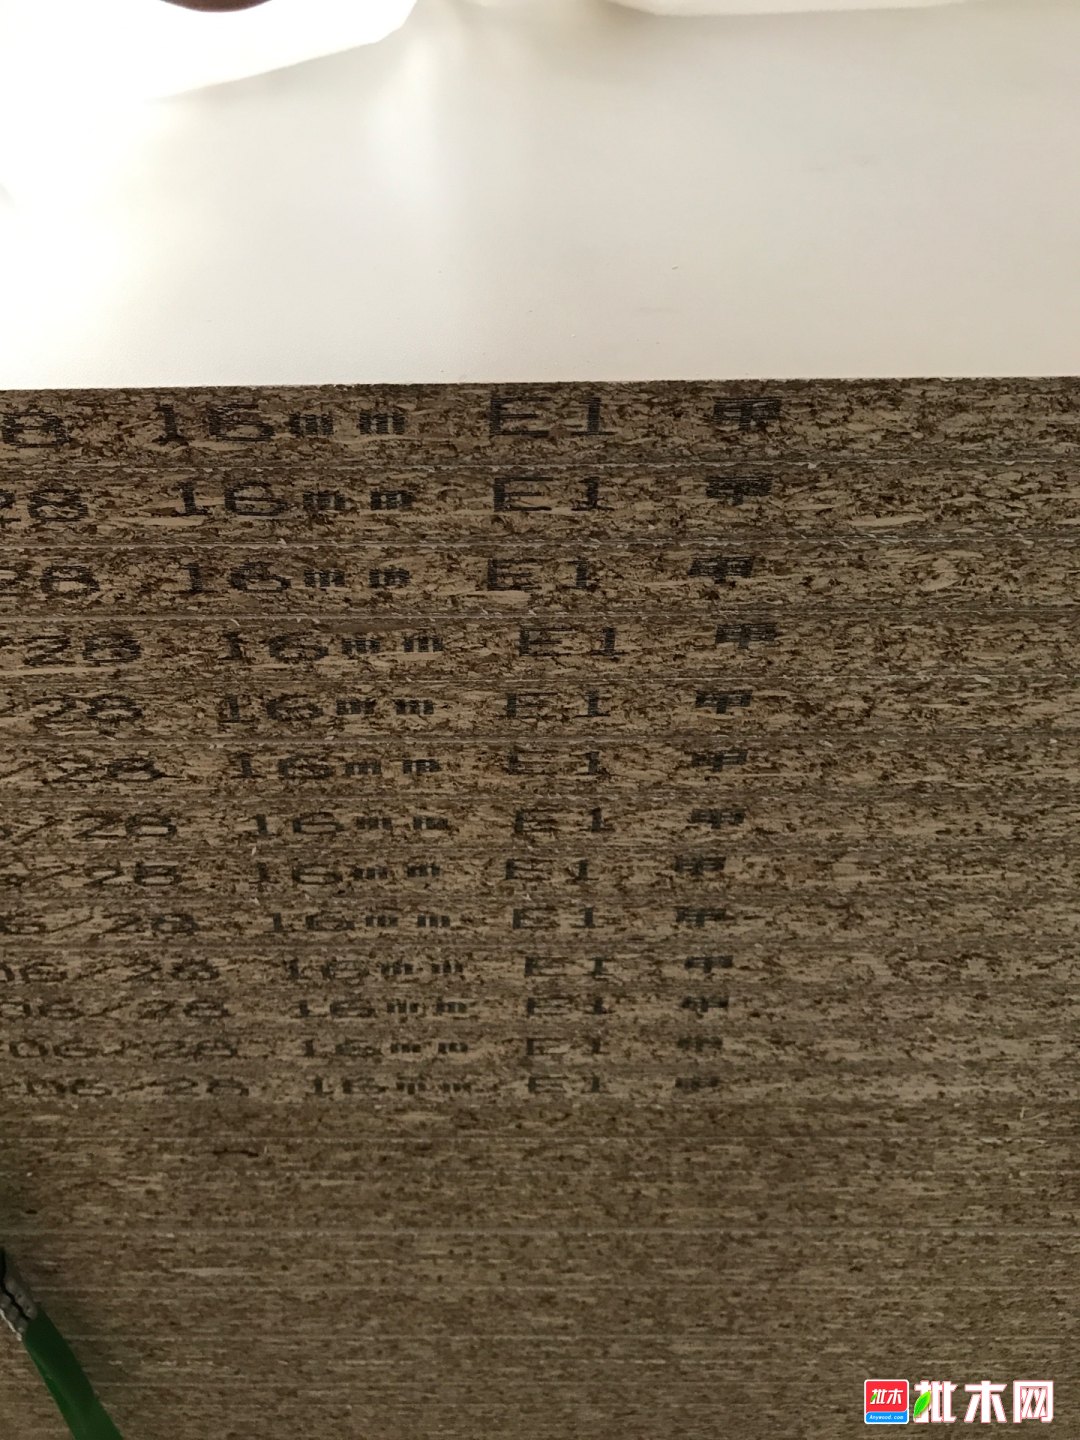 8 16mm E1 甲
28 16mm E1 甲
28 16mm E1 甲
28 16mm E1 甲
/28 16mm E1 甲
/28 16mm E1 甲
/28 16mm E1 甲
/28 16mm E1 甲
6/28 16mm E1 甲
06/28 16mm E1 甲
06/28 16mm E1 甲
06/28 16mm E1 甲
06/28 16mm E1 甲
批木 批木网
Anywood.com